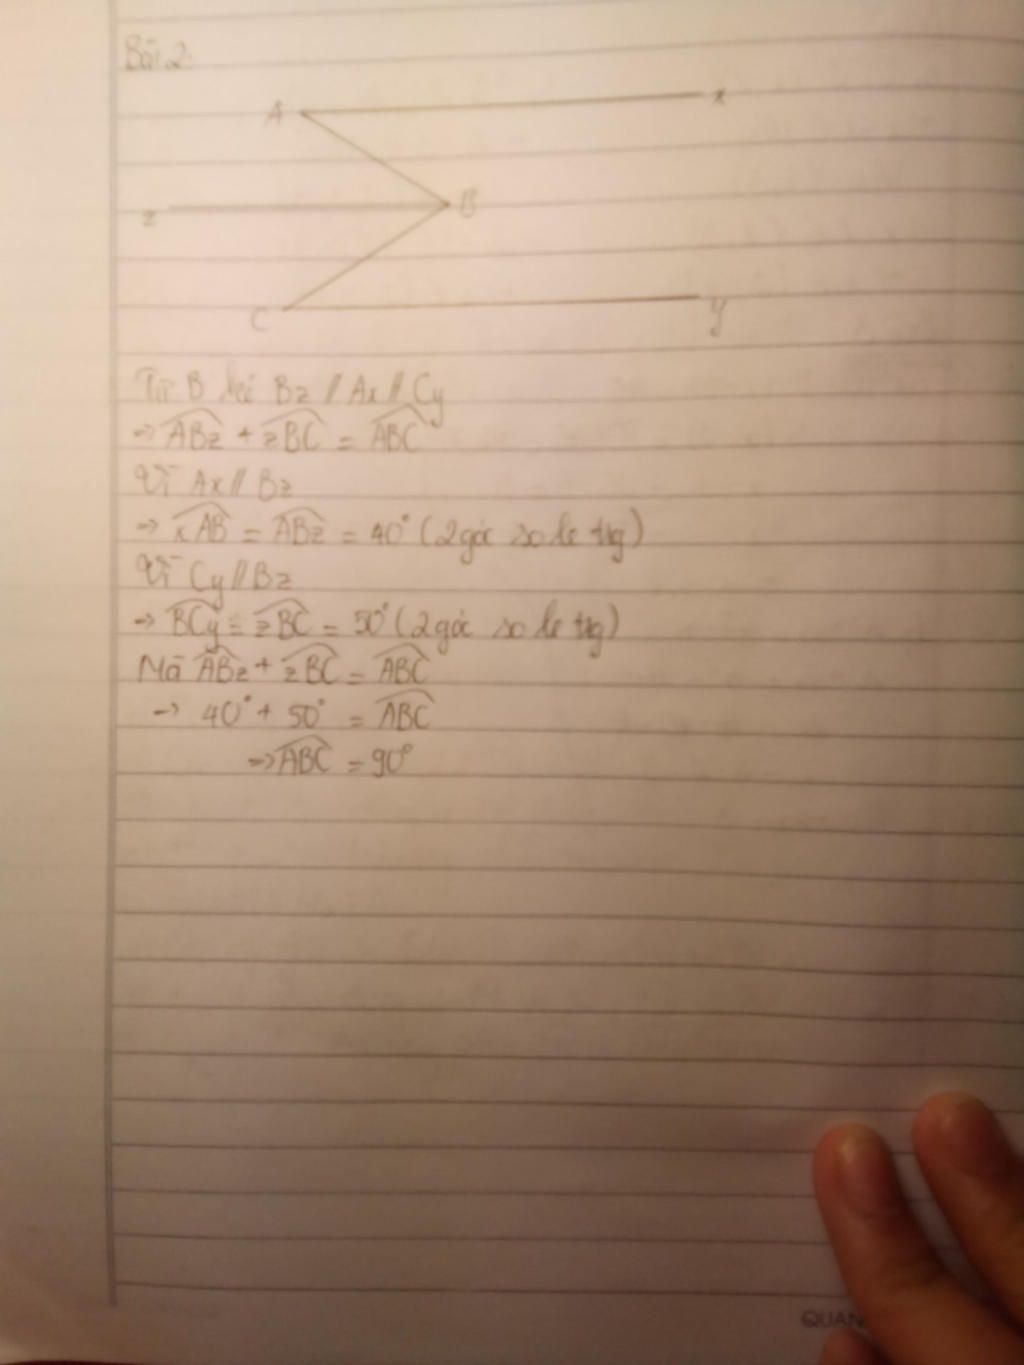 Bài 2:
A x
z B
C y
Từ B kẻ Bz // Ax // Cy
→ ABz + zBC = ABC
Vì Ax // Bz
→ xAB = ABz = 40° (2 góc so le trg)
Vì Cy // Bz
→ BCy = zBC = 50° (2 góc so le trg)
Mà ABz + zBC = ABC
→ 40° + 50° = ABC
→ ABC = 90°
QUAN